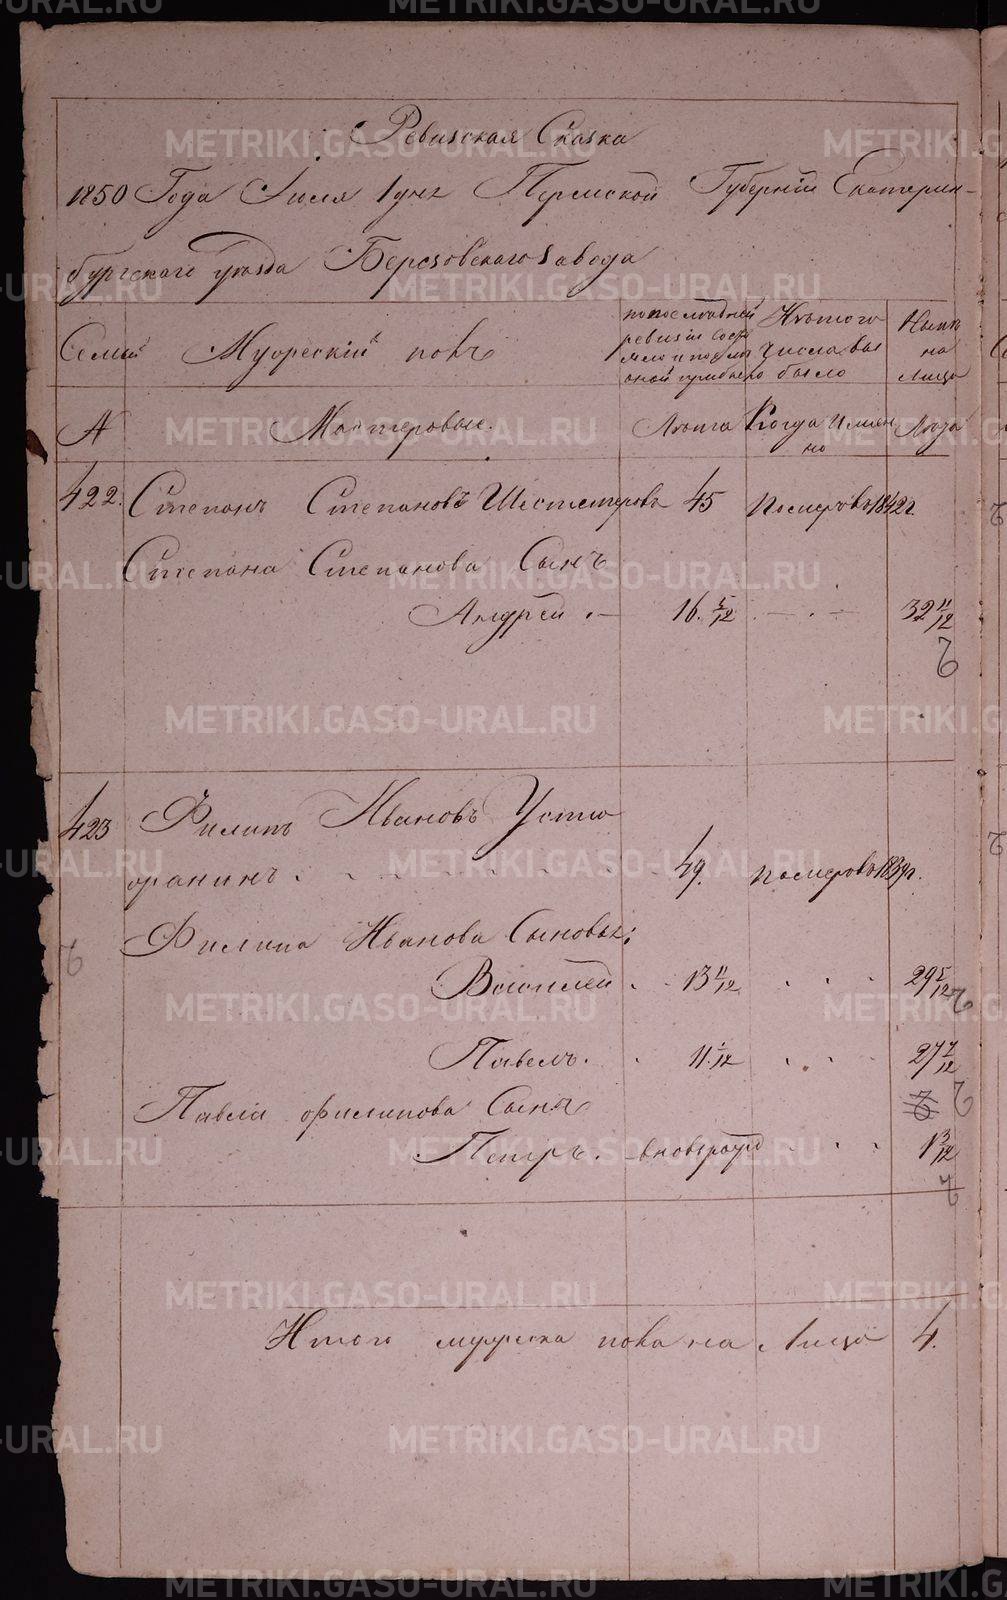 Ревизская Сказка
1850 Года Июля 1 дня Пермской Губернiи Екатерин-
бургскаго уѣзда Березовскаго Завода
Семьи
Мужескiй полъ
по последней
ревизiи состо
яло и после
оной прибыло
Изъ того
числа вы
было
Нынѣ
на
лицо
А
Мастеровые.
Лѣта
Когда Имян
но
Лѣта
422. Степанъ Степановъ Шестеперовъ 45 Померъ въ 1842 г.
Степана Степанова Сынъ
Андрей . — 16. 5/12 — . — 32 11/12
423 Филипъ Ивановъ Устю
жанинъ . 49. Померъ въ 1839 г.
Филипа Иванова Сыновья;
Василей . 13 11/12 . . 29 5/12
Павелъ . . 11 1/12 . . . 27 7/12
Павла Филипова Сынъ
Петръ . вновь рожд . . 1 3/12
Итого мужеска пола на Лицо 4.
METRIKI.GASO-URAL.RU